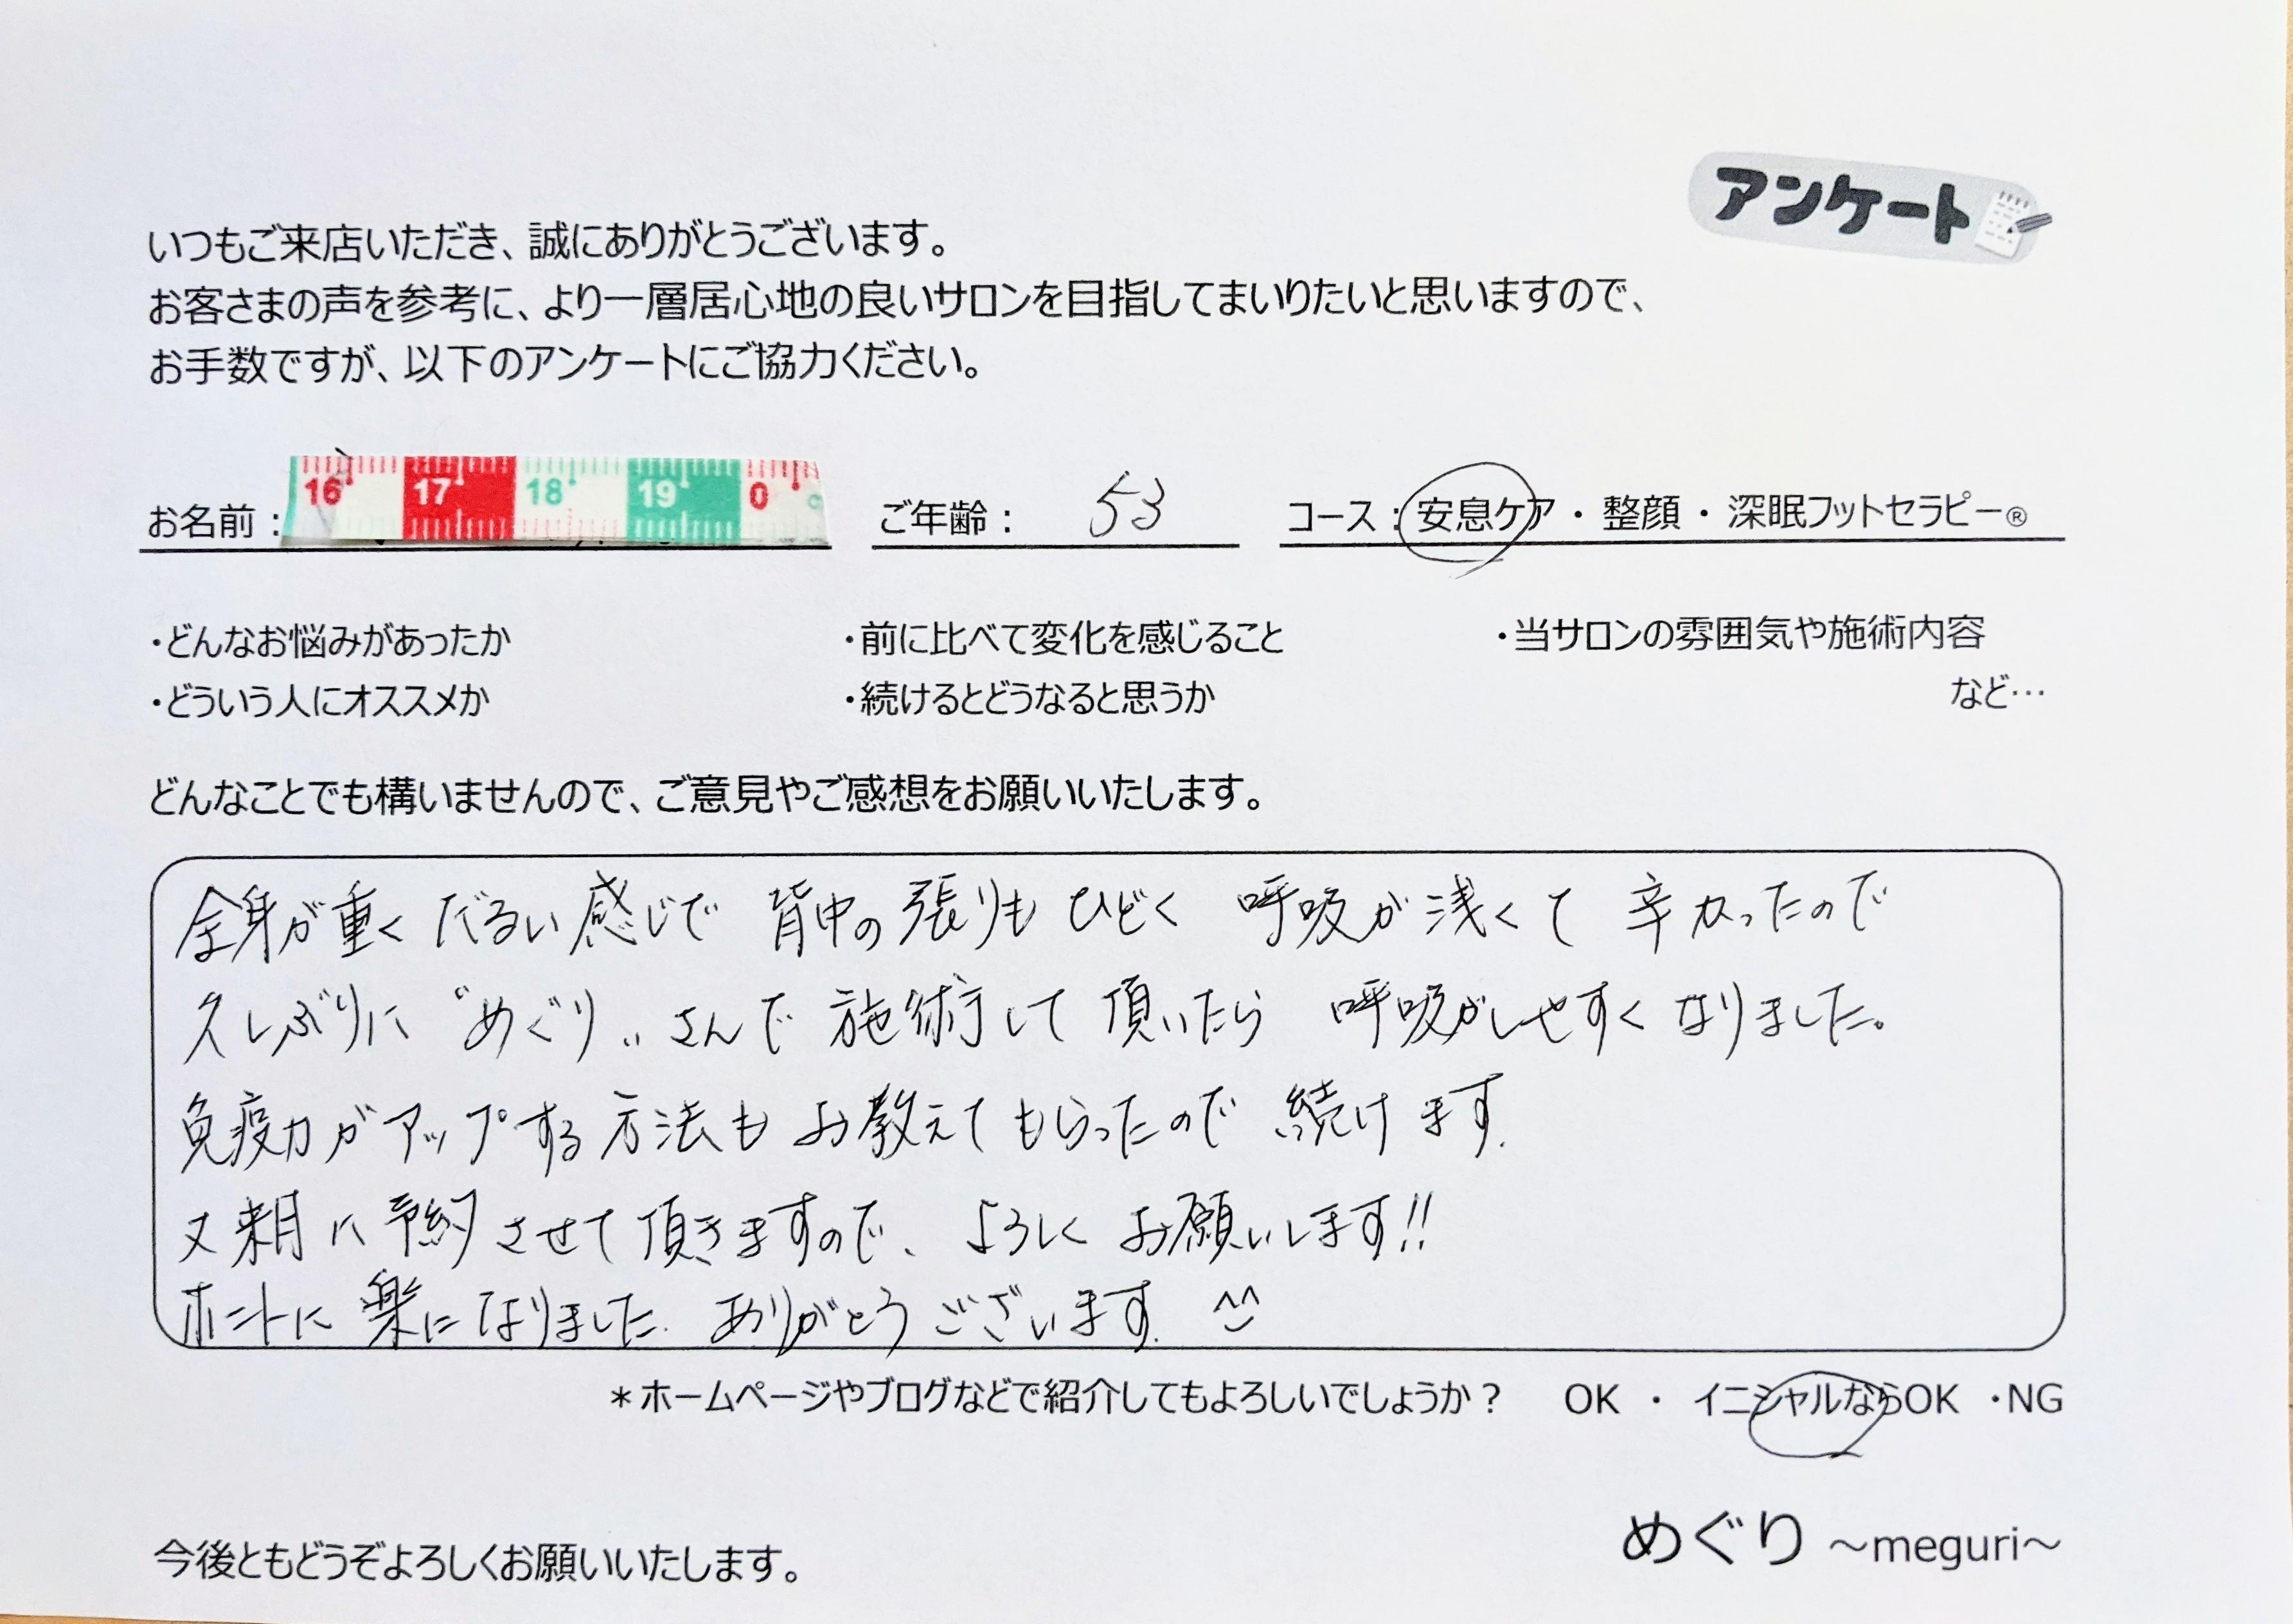 アンケート
いつもご来店いただき、誠にありがとうございます。
お客さまの声を参考に、より一層居心地の良いサロンを目指してまいりたいと思いますので、
お手数ですが、以下のアンケートにご協力ください。
お名前： 16 17 18 19 0 ご年齢： 53 コース：安息ケア・整顔・深眠フットセラピー®
・どんなお悩みがあったか ・前に比べて変化を感じること ・当サロンの雰囲気や施術内容
・どういう人にオススメか ・続けるとどうなると思うか など…
どんなことでも構いませんので、ご意見やご感想をお願いいたします。
全身が重く だるい感じで 背中の張りも ひどく 呼吸が浅くて 辛かったので
久しぶりに "めぐり" さんで 施術して 頂いたら 呼吸がしやすく なりました。
免疫力がアップする方法も お教えて もらったので 続けます.
又来月に予約させて頂きますので、よろしく お願いします!!
ホントに 楽になりました. ありがとう ございます. ^^
＊ホームページやブログなどで紹介してもよろしいでしょうか？ OK ・ イニシャルならOK ・NG
めぐり ～meguri～
今後ともどうぞよろしくお願いいたします。